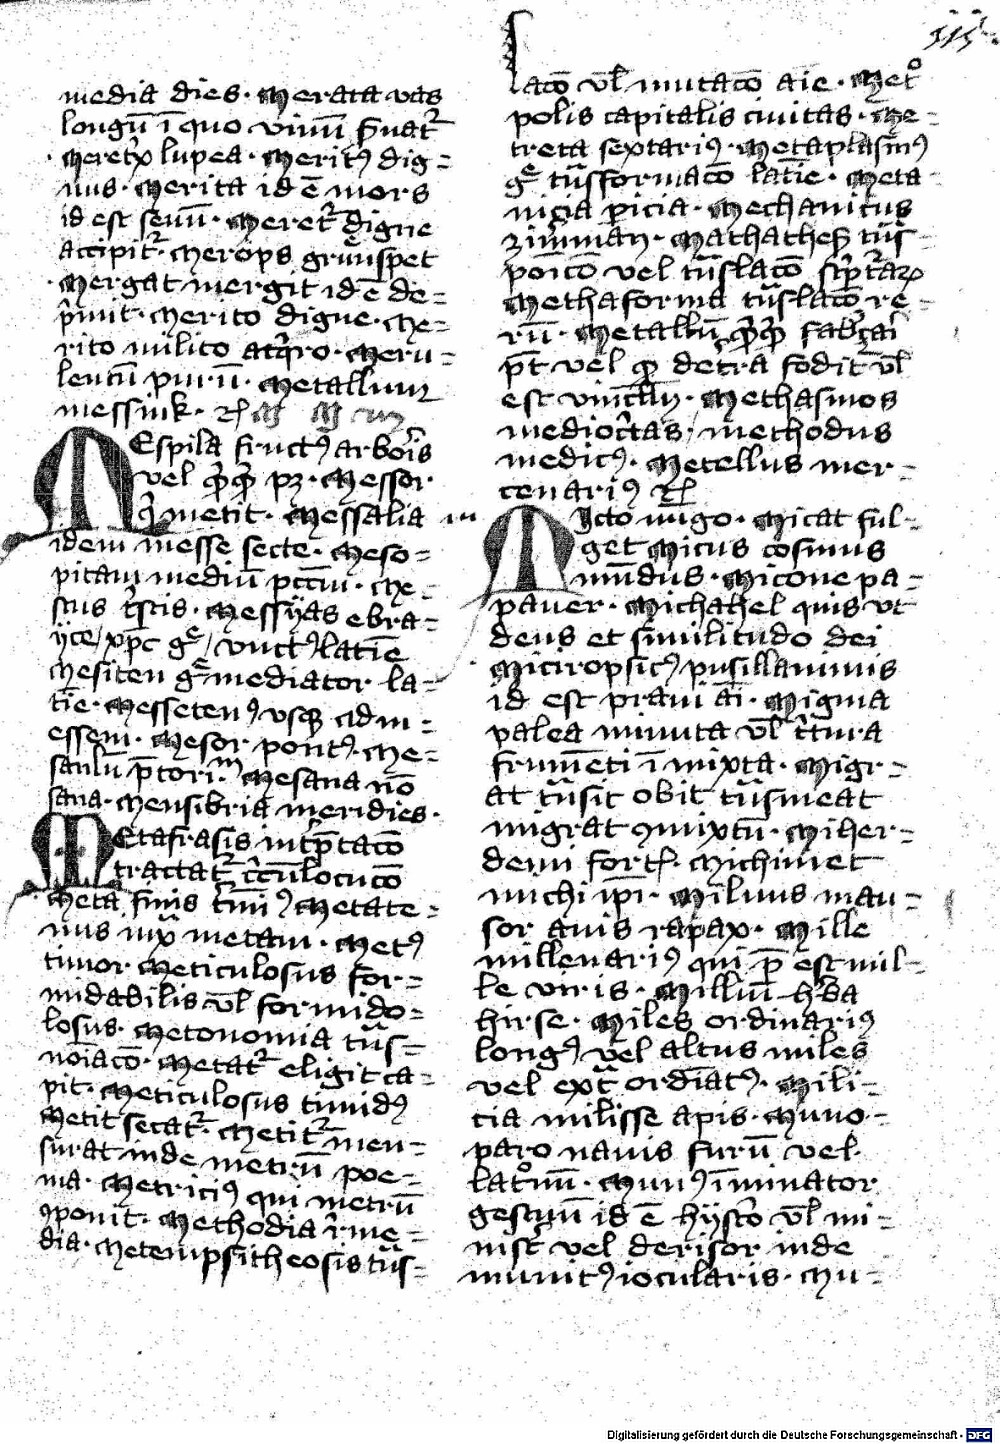 media dies · Merata vas
longū ī quo vinū ẜuat᷑
· Meret᷑x lupea · Merit⁹ dig=
nus · Merita id ē mors
id est · Meret᷑ digne
accipit᷑ · Merops grūspet
· Mergat mergit id ē de=
p̄mit · Merito digne · Me=
rito milito · Meru=
lentū purū · Metallum
messink ·
MEspila fruct⁹ arboris
vel · Messor
q̇ metit · Messalia
idem messe secte · Meso=
pitam mediū · Me=
stus t᷑stis · Messyas ebra=
yce / xp̄c gͤ / vnct⁹ latīe
Mesiten gͤ mediator la=
tīe · Messeten⁹ vsq̨ ad m=
essem · Mesor pont⁹ · Me=
Mesana nō
sana · Mensibria meridies ·
MEtafrasis int̄p̄tacō
tractat᷑ c̄cūlocucō
Meta finis t᷑mi⁹ Metate=
nus metam · Met⁹
timor Meticulosus for=
midabilis vl̄ formido=
losus · Metonomia tᷓns=
noīacō · Metat᷑ eligit ca=
pit · Meticulosus timid⁹
Metit secat᷑ · Metit᷑ men=
surat inde metrū poe=
ma · Metrici⁹ qui metrū
ꝯponit · Methodia me=
dia · Metempsitheosis tᷓns=
lacō vl̄ mutacō aīe · Metᵒ
polis capitalis ciuitas · Me=
treta sextari⁹ · Metaplasm⁹
gͤ tᷓnsformacō latīe · Meta
nicia picia · Mechanicus
zim̄man · tᷓns
poīcō vel tᷓnslacō
Methaforma tᷓnslacō re=
rū · Metallū
p̄t vel q̨ detra fodit᷑ vl̄
est · Methasmos
medioc᷑tas / methodus
medic⁹ · Metellus mer=
cenari⁹
MIcto mīgo · Micat ful=
get Micus cosmus
mūdus · Micone pa=
pauer · Michahel quis vt
deus et similitudo dei
Micropsic⁹ pusillanimis
id est praui āi · Migma
palea minuta vl̄ t᷑tura
frumēti ī mixta · Migr=
at tᷓnsit obit tᷓnsmeat
migrat ꝯmixtū · Miher=
demi · Michimet
michi ip̄i · Miluus mau=
sor auis rapax · Mille
millenari⁹ qui p̄ est mil=
le viris · Milliū h᷑ba
hirse · Miles ordinari⁹
long⁹ vel altus miles
vel ext᷑ ordīat⁹ · Mili=
cia milisse apis · Muno=
paro nauis furū vel
latͦnū · Mun⁹ īminator
gestuū id ē hyst᷑o vl̄ mi=
nist᷑ vel derisor inde
munit⁹ iocularis · Mu=
Digitalisierung gefördert durch die Deutsche Forschungsgemeinschaft · DFG